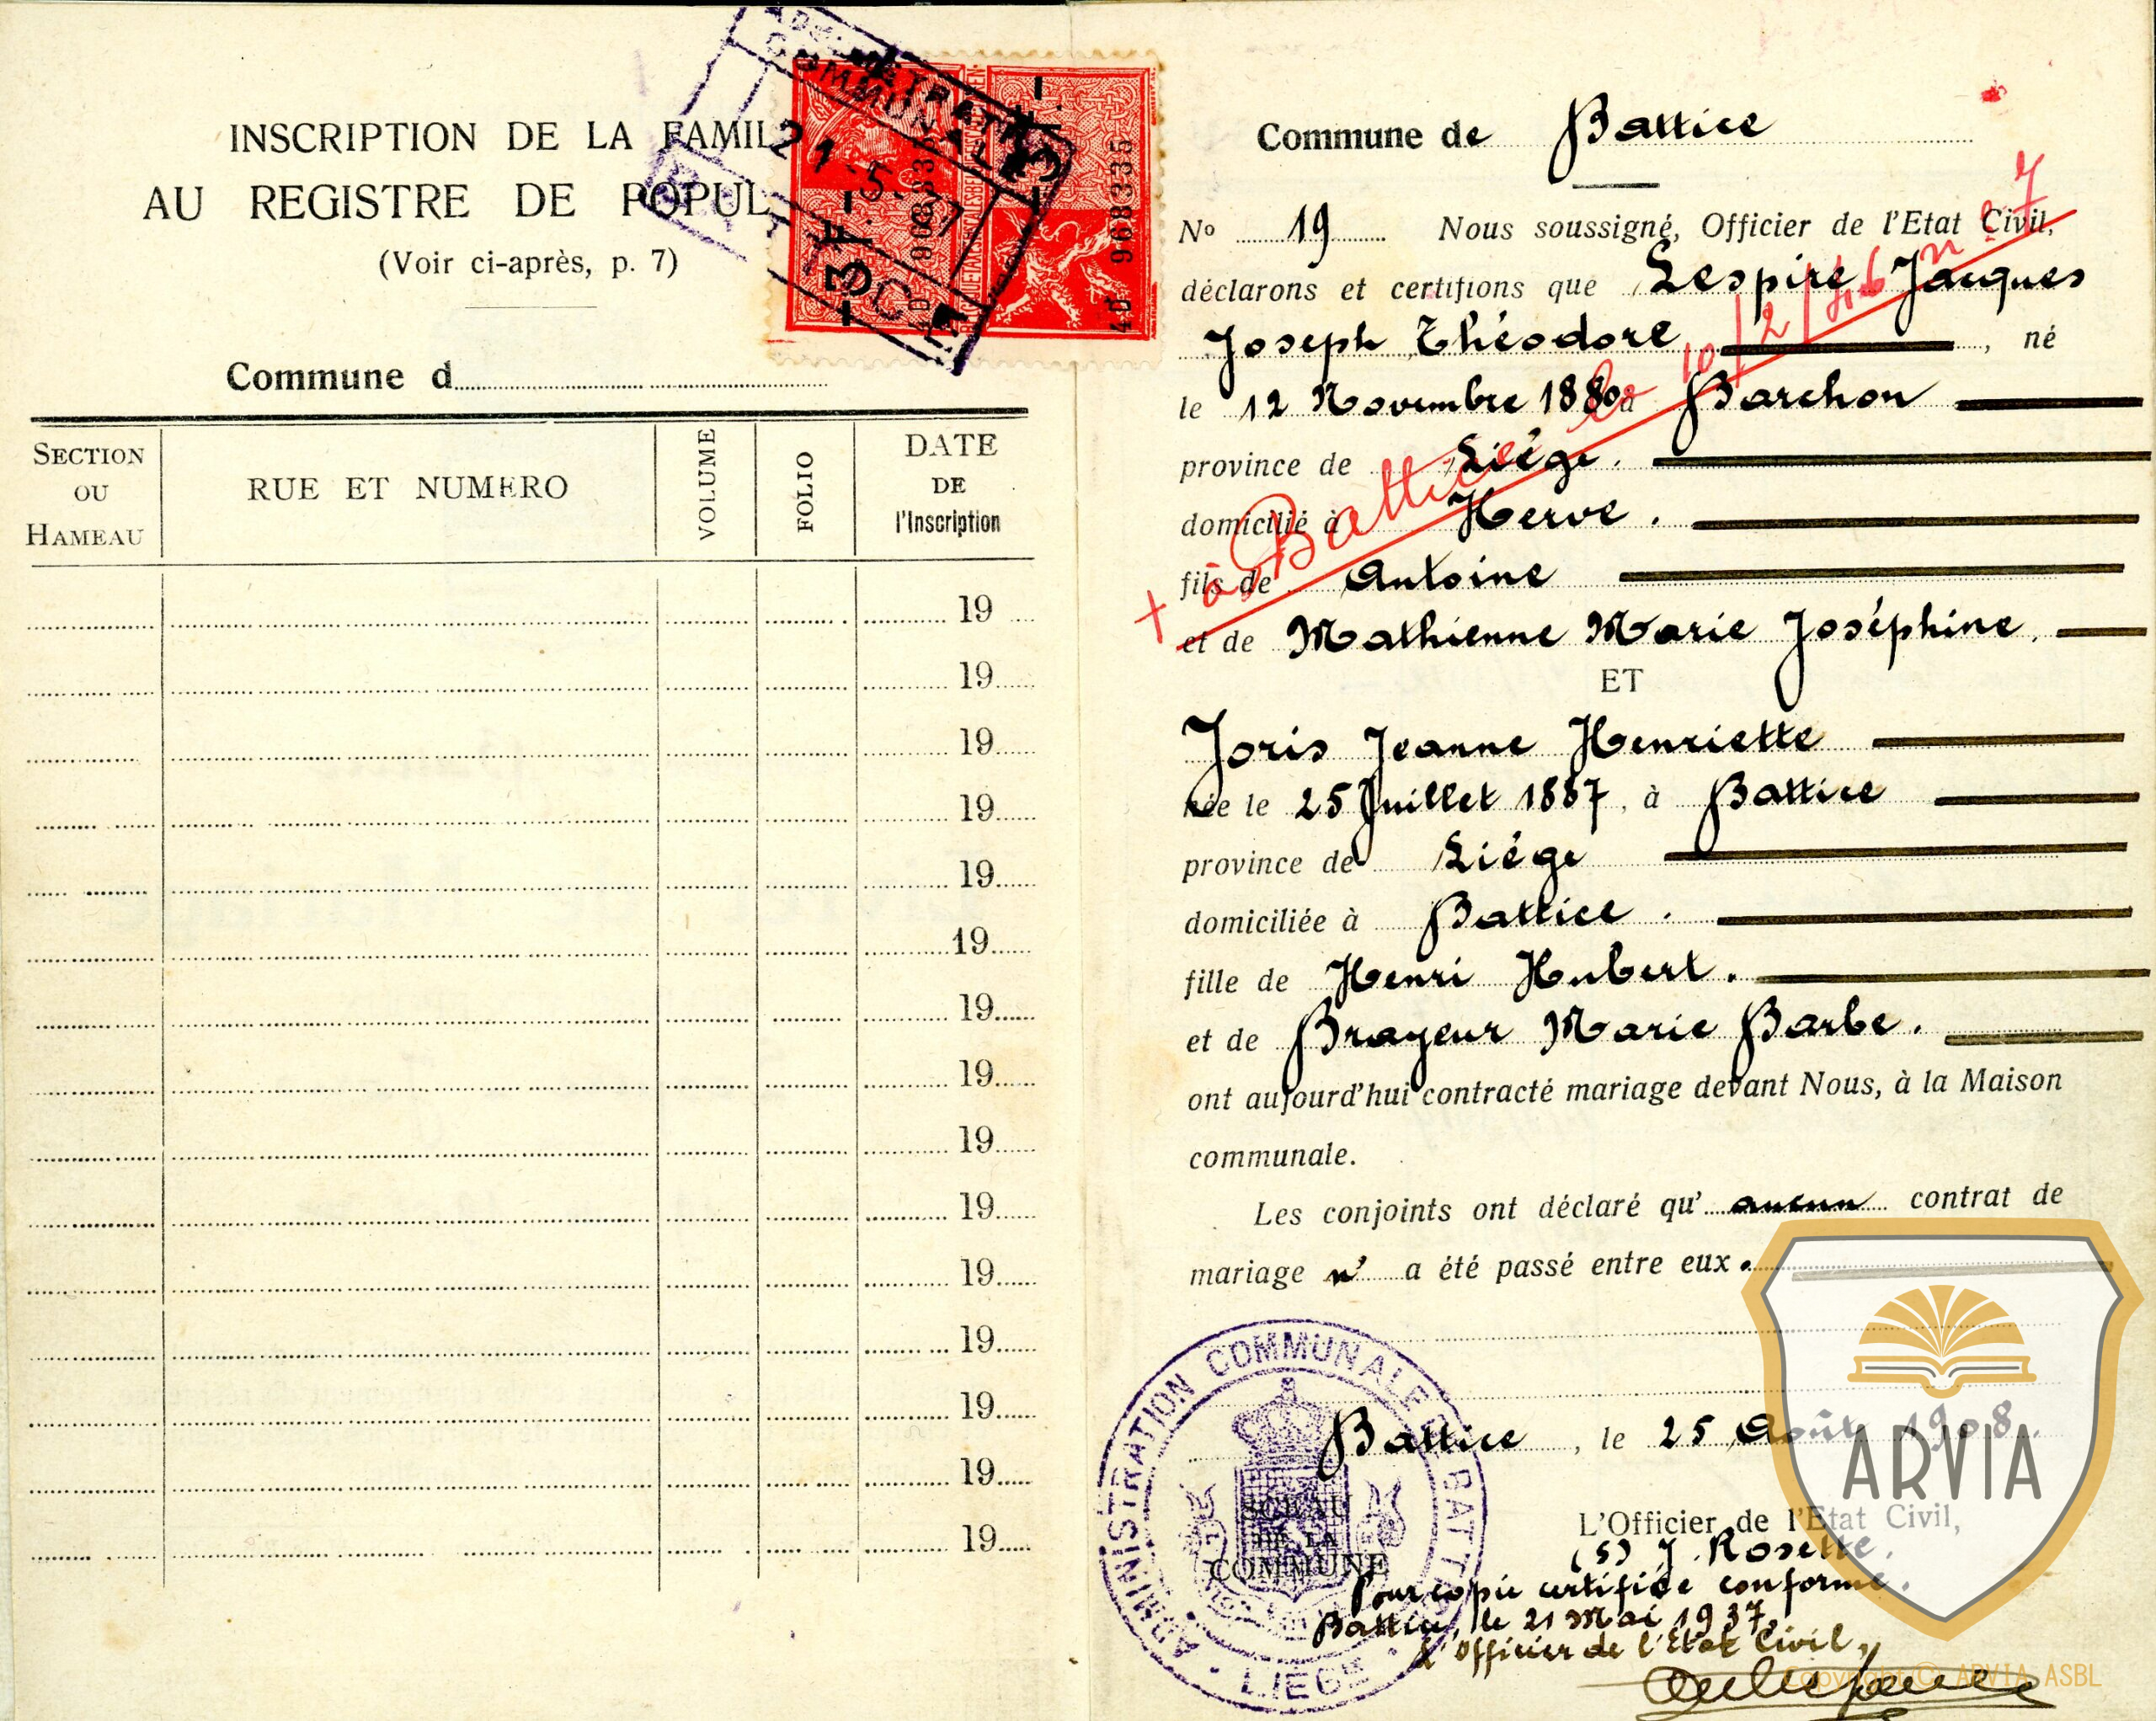 INSCRIPTION DE LA FAMIL
AU REGISTRE DE POPUL
(Voir ci-après, p. 7)
Commune d
SECTION OU HAMEAU
RUE ET NUMERO
VOLUME
FOLIO
DATE DE l'Inscription
19
19
19
19
19
19
19
19
19
19
19
19
19
19
19
ADMINISTRATION
COMMUNALE
21 5
968335
968335
Commune de Battice
No 19 Nous soussigné, Officier de l'Etat Civil,
déclarons et certifions que Lespire Jacques
Joseph Théodore, né
le 12 Novembre 1880 à Barchon
province de Liége.
domicilié à Herve.
fils de Antoine
et de Mathienne Marie Joséphine.
+ à Battice le 10/2/46 n° 7
ET
Joris Jeanne Henriette
née le 25 Juillet 1887, à Battice
province de Liége
domiciliée à Battice.
fille de Henri Hubert.
et de Brayeur Marie Barbe.
ont aujourd'hui contracté mariage devant Nous, à la Maison
communale.
Les conjoints ont déclaré qu' aucun contrat de
mariage n' a été passé entre eux.
Battice, le 25 Août 1908.
L'Officier de l'Etat Civil,
(s) J. Rosette.
Pour copie certifiée conforme.
Battice, le 21 Mai 1937,
L'Officier de l'Etat Civil,
ADMINISTRATION COMMUNALE BATTICE
LIÉGE
SCEAU
DE LA
COMMUNE
ARVIA
Copyright © ARVIA ASBL